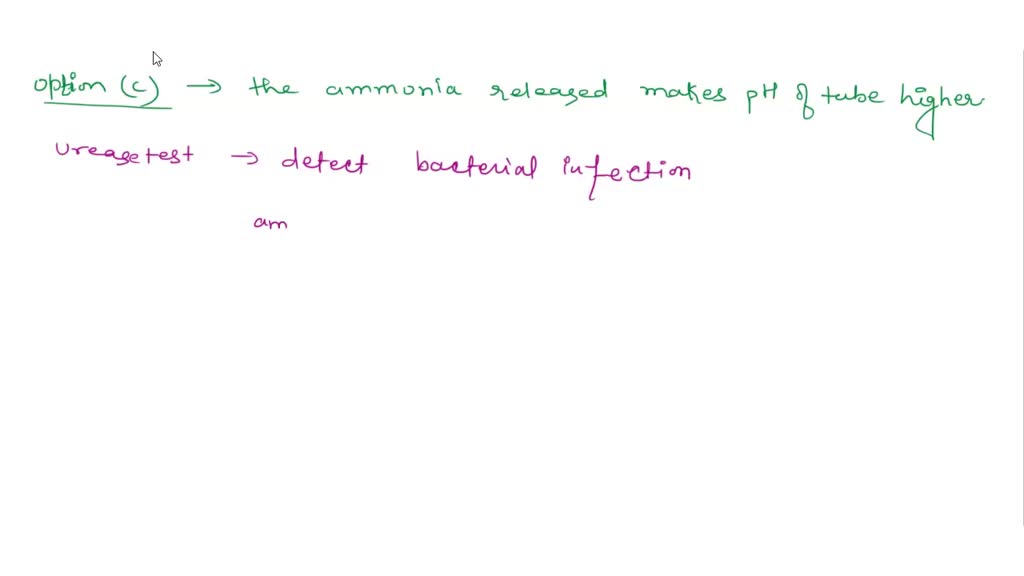 option (c) → the ammonia released makes pH of tube higher
Urease test → detect bacterial infection
am